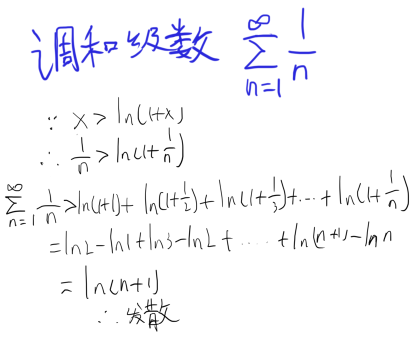 调和级数 ∑_{n=1}^{∞} 1/n
∵ x > ln(1+x)
∴ 1/n > ln(1+1/n)
∑_{n=1}^{∞} 1/n > ln(1+1) + ln(1+1/2) + ln(1+1/3) + ... + ln(1+1/n)
= ln2 - ln1 + ln3 - ln2 + ...... + ln(n+1) - ln n
= ln(n+1)
∴ 发散